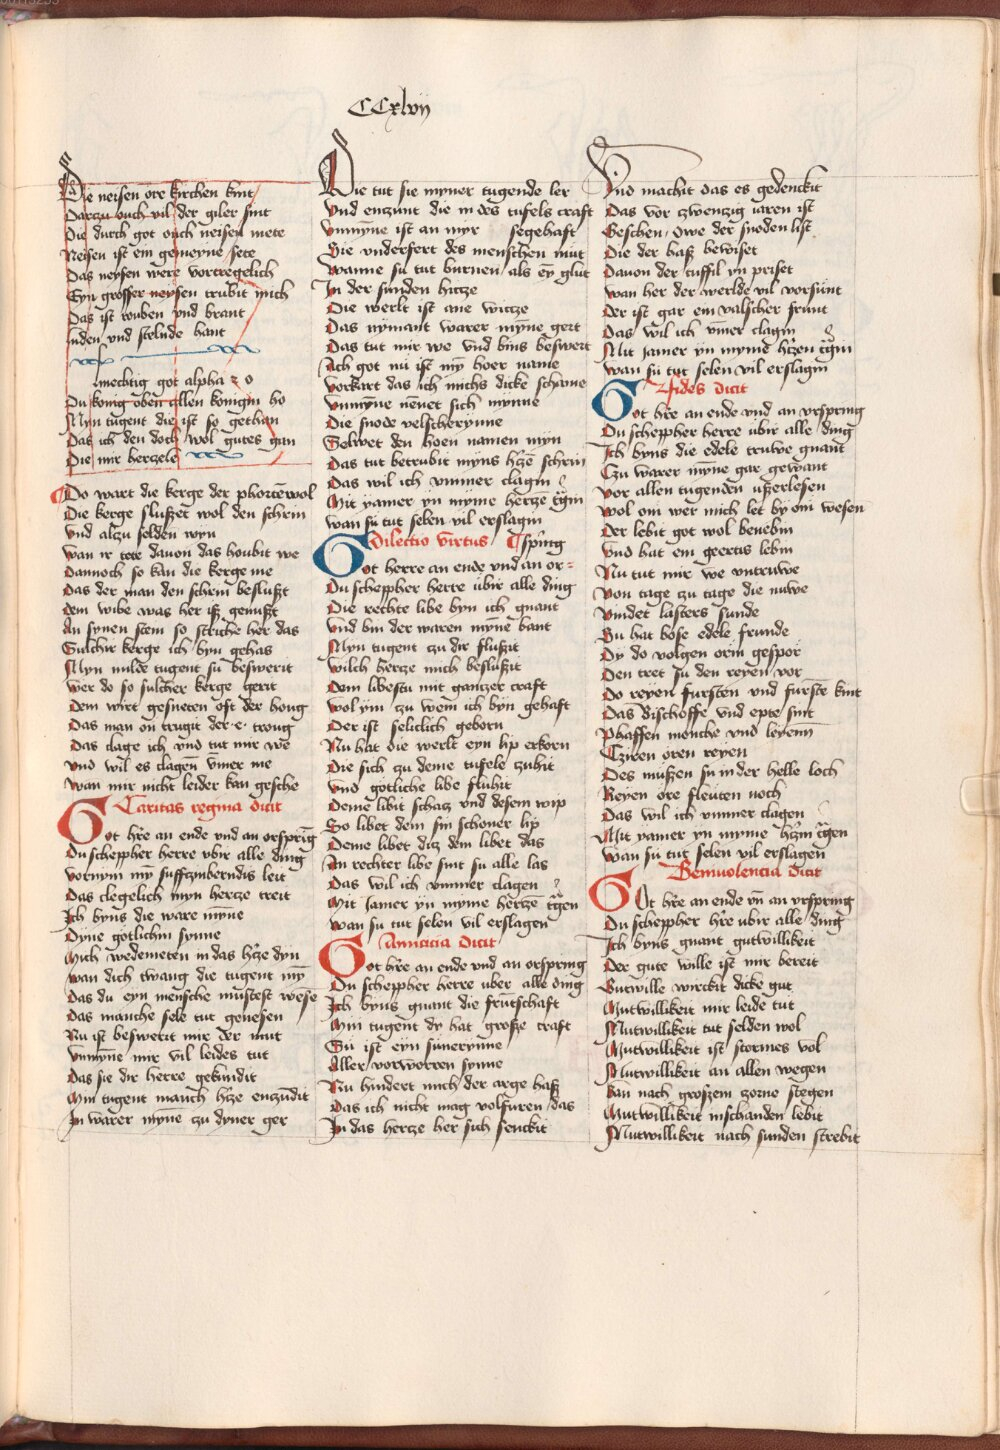 CCxlvij
Die neisen ore kirchen kint
Darzu ouch vil der giler sint
Die durch got ouch neisen mete
Neisen ist ein gemeyne sete
Das neysen were vortregelich
Eyn grosser neysen trubit mich
Das ist rouben vnd brant
vnd stelnde hant
mechtig got alpha z o
Du konig obir allen konigin ho
Myn tugent die ist so gethan
Das ich den doch wol gutes gan
Die mir herzele
Do wart die kerge der phortē wol
Die kerge slusszet wol den schrin
Vnd alzu selden wyn
Wan ir tete dauon das houbit we
Dannoch so kan die kerge me
Das der man den schrin beslußt
Dem wibe was her iß genußt
An synen stem so striche her das
Sulchir kerge ich byn gehas
Myn milde tugent sü beswerit
Wer do so sulcher kerge gerit
Dem wirt gesneten oft der houg
Das man on trugit der e troug
Das clage ich vnd tut mir we
Vnd wil es clagen v̄mer me
Wan mir nicht leider kan gesche
Caritas regina dicit
Got h're an ende vnd an orsprīg
Du schepper herre vbir alle ding
Vornym mȳ suffczinberndis leit
Das clegelich myn hercze treit
Ich byns die ware mȳne
Dyne gotlichin synne
Mich wedemeten in das h'ze dyn
Wan dich twang die tugent mȳ
Das du eyn mensche mustest wese
Das manche sele tut genesen
Nu ist beswerit mir der mut
Vnmȳne mir vil leides tut
Das sie dir herre gekundit
Min tugent manch h'ze enzūdit
In warer mȳne zu dyner ger
Die tut sie myner tugende ler
Vnd enzunt die in des tufels craft
Vnmyne ist an myr segehaft
Sie vndersert des menschen mut
Wanne sü tut burnen als eȳ glut
In der sunden hitze
Die werlt ist ane witze
Das nymant warer mȳne gert
Das tut mir we vnd bins beswert
Ach got nü ist mȳ hoer name
Vorkart das ich michs dicke schame
Vnmȳne nēnet sich mynne
Die snode velscherynne
Selwet den hoen namen myn
Das tut betrubit myns h'zē schrin
Das wil ich vmmer clagin
Mit yamer yn myme hertze t'gin
Wan sü tut selen vil erslagin
Dilectio virtus spring
Got herre an ende vnd an or-
Du schepper herre übir alle ding
Die rechte libe byn ich gnant
Vnd bin der waren mȳne bant
Myn tugent zu dir flusszit
Wilch hercze mich beslusszit
Dem libestu mit ganczer craft
Wol ym zu wem ich byn gehaft
Der ist seliclich geborn
Nu hat die werlt eyn lip erkorn
Die sich zu deme tufele zuhit
Vnd gotliche libe fluhit
Deme libit schacz vnd desem wip
So libet dem sin schoner lip
Deme libet diz dem libet das
An rechter libe sint sü alle las
Das wil ich vmmer clagen
Mit Jamer yn myme herczē t'gen
Wan sü tut selen vil erslagen
Amicicia dicit
Got h're an ende vnd an orspring
Du schepper herre vber alle ding
Ich byns gnant die frūtschaft
Min tugent dy hat große craft
Sü ist eyn sunerynne
Aller vorworren synne
Nu hyndert mich der arge haß
Das ich nicht mag volfuren das
In das hercze her sich senckit
Vnd machit das es gedenckit
Das vor zwenzig iaren ist
Geschen Owe der snoden list
Die der haß bewiset
Dauon der tuffil yn priset
Wan her der werlde vil vorsünt
Der ist gar ein valscher frunt
Das wil ich v̄mer clagin
Mit Jamer yn myme h'zen t'gin
Wan sü tut selen vil erslagin
Fides dicit
Got h're an ende vnd an vrspring
Du schepper herre übir alle ding
Ich byns die edele truwe gnant
Czu warer myne gar gewant
Vor allen tugenden vßerlesen
Wol om wer mich let by om wesen
Der lebit got wol benebin
Vnd hat ein geertis lebin
Nu tut mir we vntruwe
Von tage zu tage die nuwe
Vindet lasters sunde
Su hat bose edele frunde
Dy do volgen orim gespor
Den tret sü den reyen vor
Do reyen fursten vnd furstē kint
Das Bischoffe vnd epte sint
Phaffen monche vnd leyenn
Cziren oren reyen
Des mußen sü in der helle loch
Reyen ore fleuten noch
Das wil ich vmmer clagen
Mit yamer yn myme h'zin t'gen
Wan sü tut selen vil erslagen
Beniuolencia dicit
Got h're an ende vn̄ an vrspring
Du schepper h're übir alle ding
Ich byns gnant gutwillikeit
Der gute wille ist mir bereit
Gutwille wirckit dicke gut
Mutwillikeit mir leide tut
Mutwillikeit tut selden wol
Mutwillikeit ist stormes vol
Mutwillikeit an allen wegen
Kan nach großem zorne stegen
Mutwillikeit in schanden lebit
Mutwillikeit nach sunden strebit